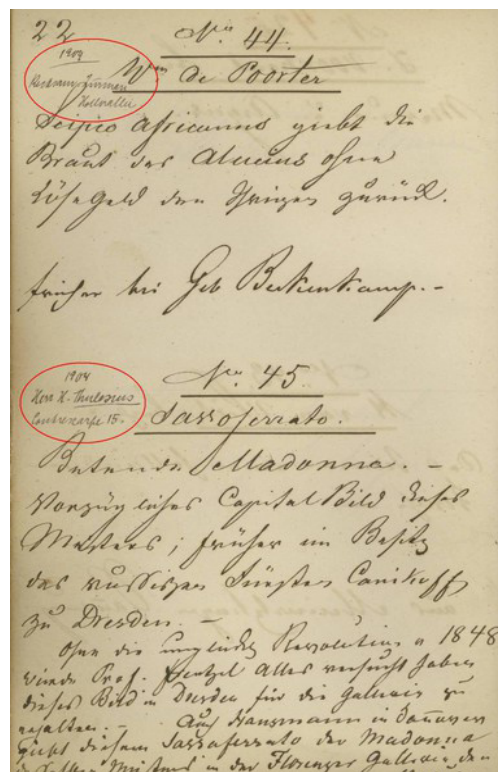 22
No. 44.
1904
Wm de Poorter
Scipio Africanus giebt die
Braut des Alucius ohne
Lösegeld den Ihrigen zurück.
früher bei Geb Berkenkamp.-
1904
Herr H. Thulesius
Contrescarpe 15.
No. 45
Sassoferrato.
Betende Madonna. -
Vorzügliches Capital Bild dieses
Meisters; früher im Besitz
des russischen Fürsten Canikoff
zu Dresden. -
Ohne die unglückl Revolution a 1848
würde Prof. Hentzel Alles versucht haben
dieses Bild in Dresden für die Gallerie zu
erhalten. - Auch Hausmann in Hannover
giebt diesem Sassoferrato der Madonna
desselben Meisters in der Florenzer Gallerie den